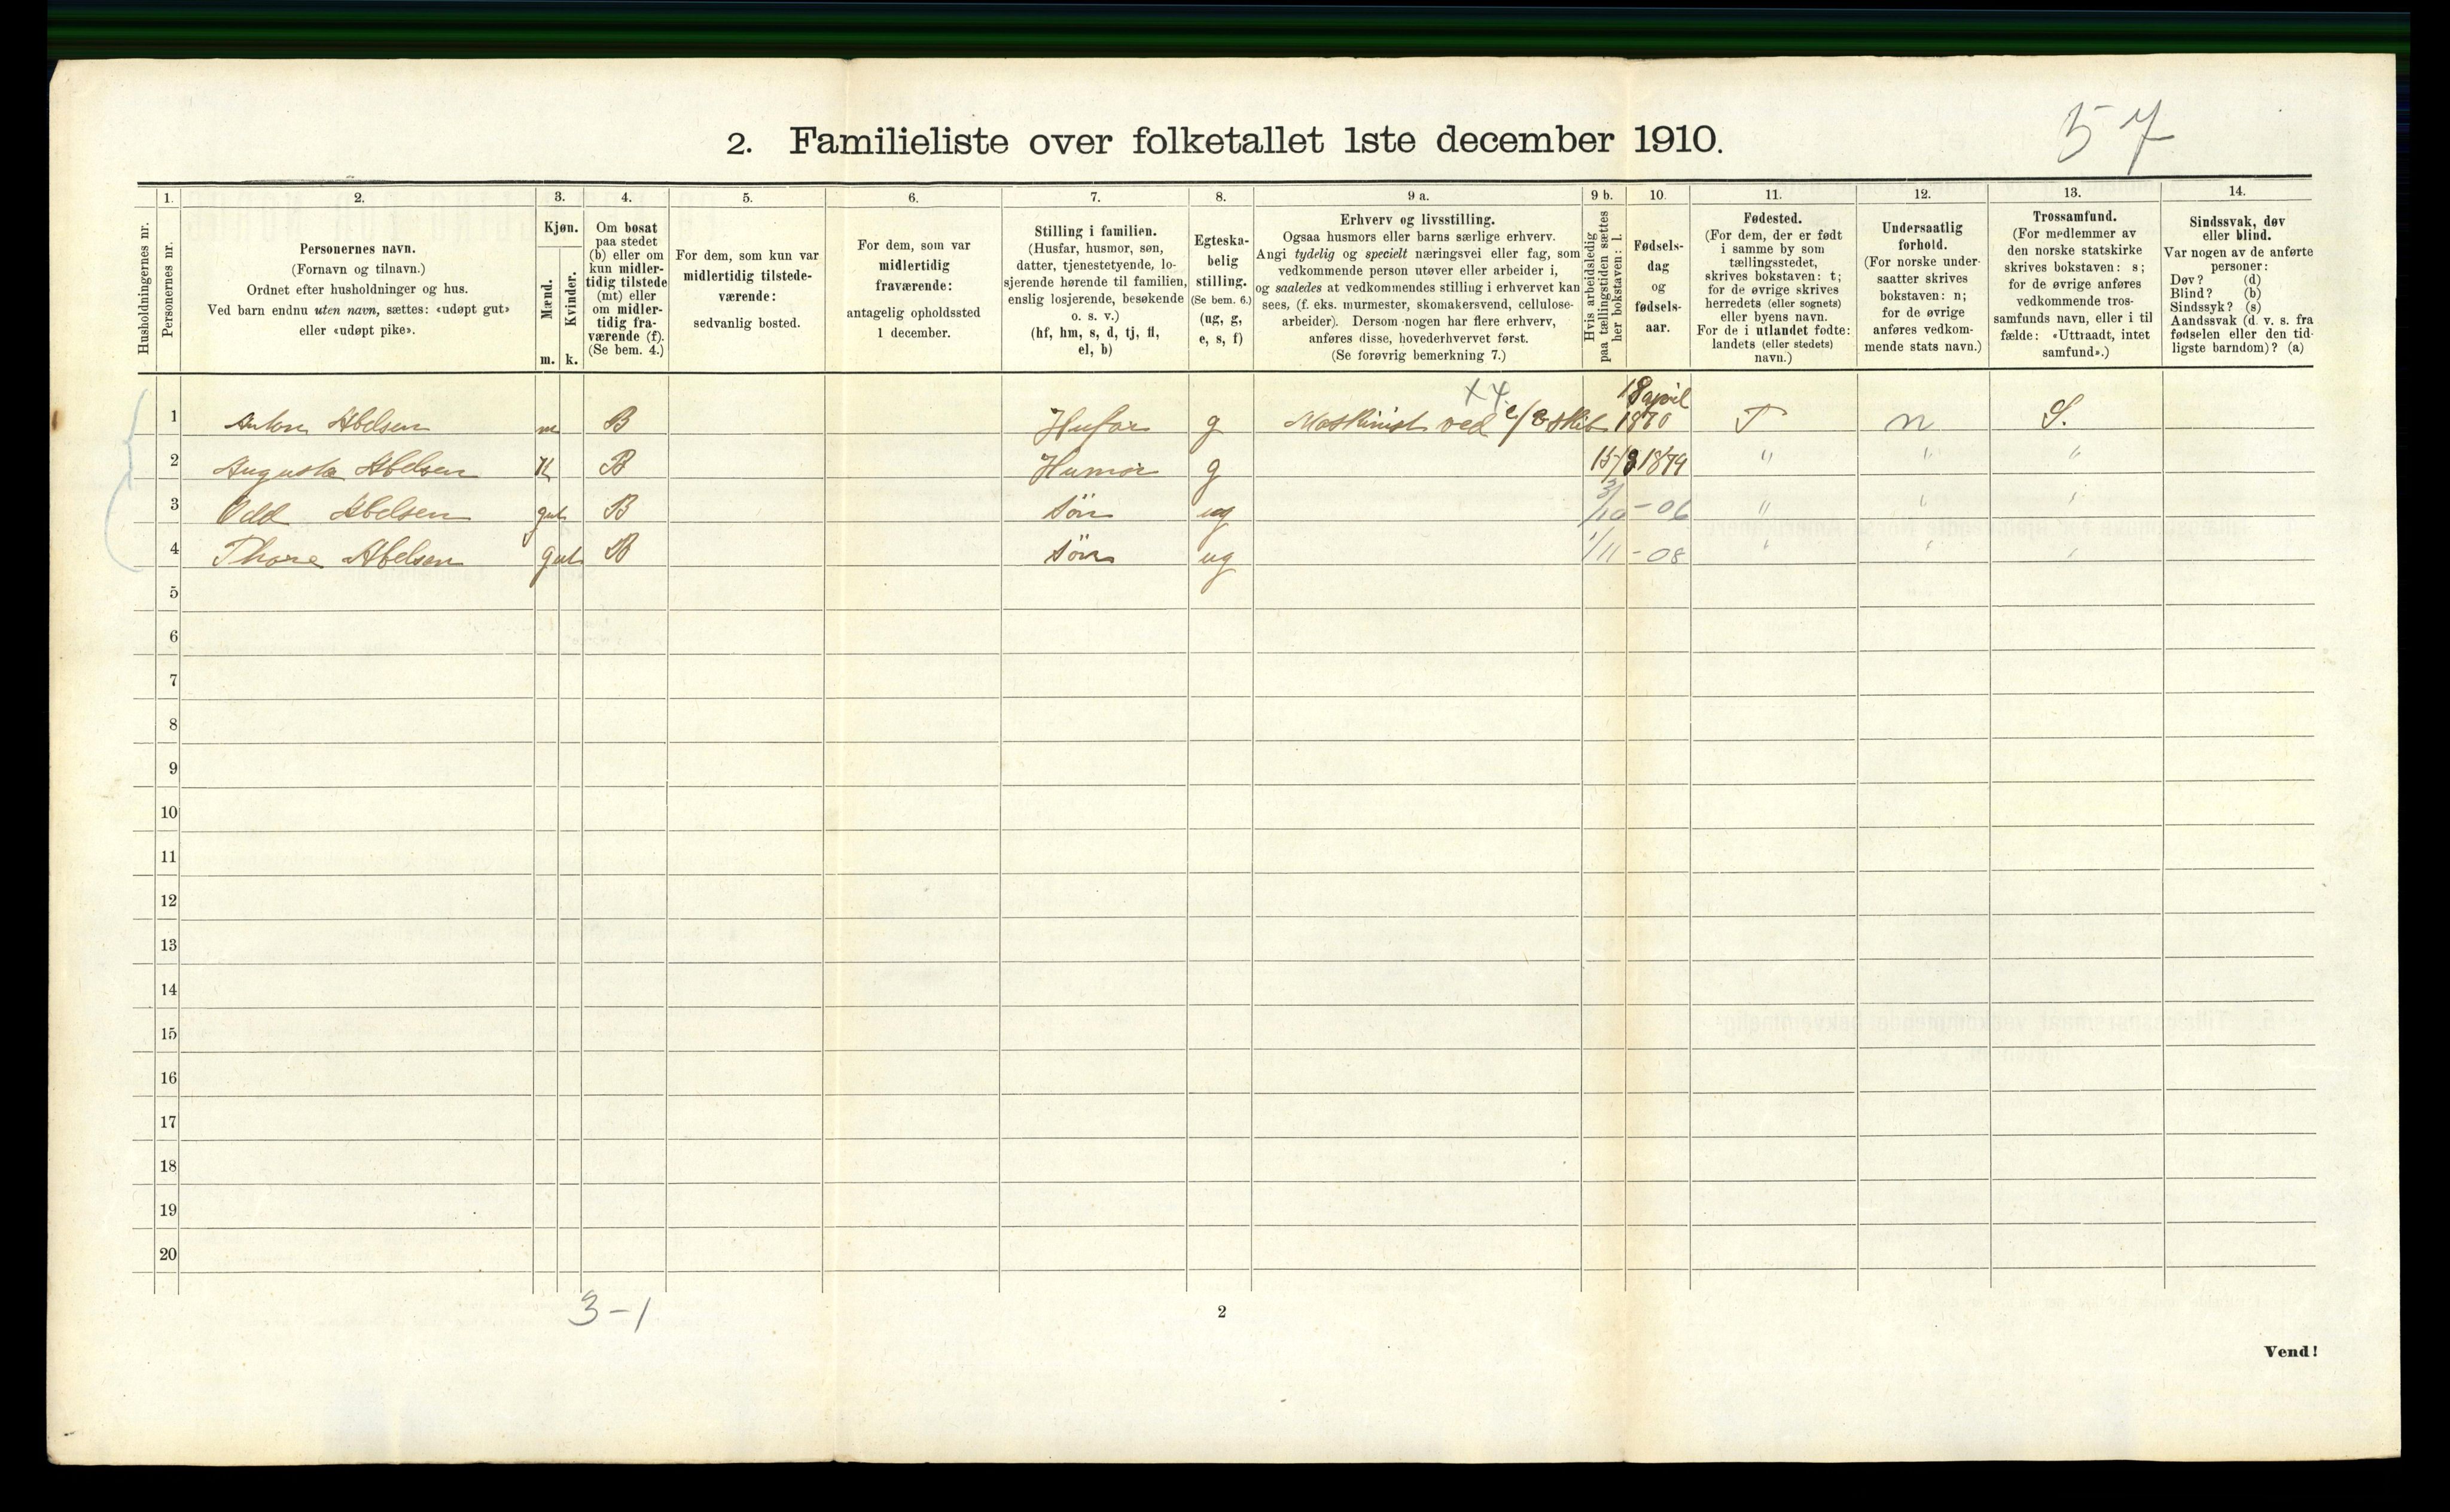 57
2. Familieliste over folketallet 1ste december 1910.
1. 2. 3. 4. 5. 6. 7. 8. 9 a. 9 b. 10. 11. 12. 13. 14.
Husholdningernes nr.
Personernes nr.
Personernes navn.
(Fornavn og tilnavn.)
Ordnet efter husholdninger og hus.
Ved barn endnu uten navn, sættes: «udøpt gut»
eller «udøpt pike».
Kjøn.
Mænd.
Kvinder.
m. k.
Om bosat
paa stedet
(b) eller om
kun midler-
tidig tilstede
(mt) eller
om midler-
tidig fra-
værende (f).
(Se bem. 4.)
For dem, som kun var
midlertidig tilstede-
værende:
sedvanlig bosted.
For dem, som var
midlertidig
fraværende:
antagelig opholdssted
1 december.
Stilling i familien.
(Husfar, husmor, søn,
datter, tjenestetyende, lo-
sjerende hørende til familien,
enslig losjerende, besøkende
o. s. v.)
(hf, hm, s, d, tj, fl,
el, b)
Egteska-
belig
stilling.
(Se bem. 6.)
(ug, g,
e, s, f)
Erhverv og livsstilling.
Ogsaa husmors eller barns særlige erhverv.
Angi tydelig og specielt næringsvei eller fag, som
vedkommende person utøver eller arbeider i,
og saaledes at vedkommendes stilling i erhvervet kan
sees, (f. eks. murmester, skomakersvend, cellulose-
arbeider). Dersom nogen har flere erhverv,
anføres disse, hovederhvervet først.
(Se forøvrig bemerkning 7.)
Hvis arbeidsledig
paa tællingstiden sættes
her bokstaven: l.
Fødsels-
dag
og
fødsels-
aar.
Fødested.
(For dem, der er født
i samme by som
tællingsstedet,
skrives bokstaven: t;
for de øvrige skrives
herredets (eller sognets)
eller byens navn.
For de i utlandet fødte:
landets (eller stedets)
navn.)
Undersaatlig
forhold.
(For norske under-
saatter skrives
bokstaven: n;
for de øvrige
anføres vedkom-
mende stats navn.)
Trossamfund.
(For medlemmer av
den norske statskirke
skrives bokstaven: s;
for de øvrige anføres
vedkommende tros-
samfunds navn, eller i til
fælde: «Uttraadt, intet
samfund».)
Sindssvak, døv
eller blind.
Var nogen av de anførte
personer:
Døv? (d)
Blind? (b)
Sindssyk? (s)
Aandssvak (d. v. s. fra
fødselen eller den tid-
ligste barndom)? (a)
X4 18 april
1 Anton Abelsen m B Hufar g Maskinist ved skib 1870 T n S.
2 Augusta Abelsen K B Humor g 15/8 1879 " " "
3 Odd Abelsen gut B Søn ug 3/10 - 06 " " "
4 Thore Abelsen gut B Søn ug 1/11 - 08 " " "
5
6
7
8
9
10
11
12
13
14
15
16
17
18
19
20
3-1
2
Vend!